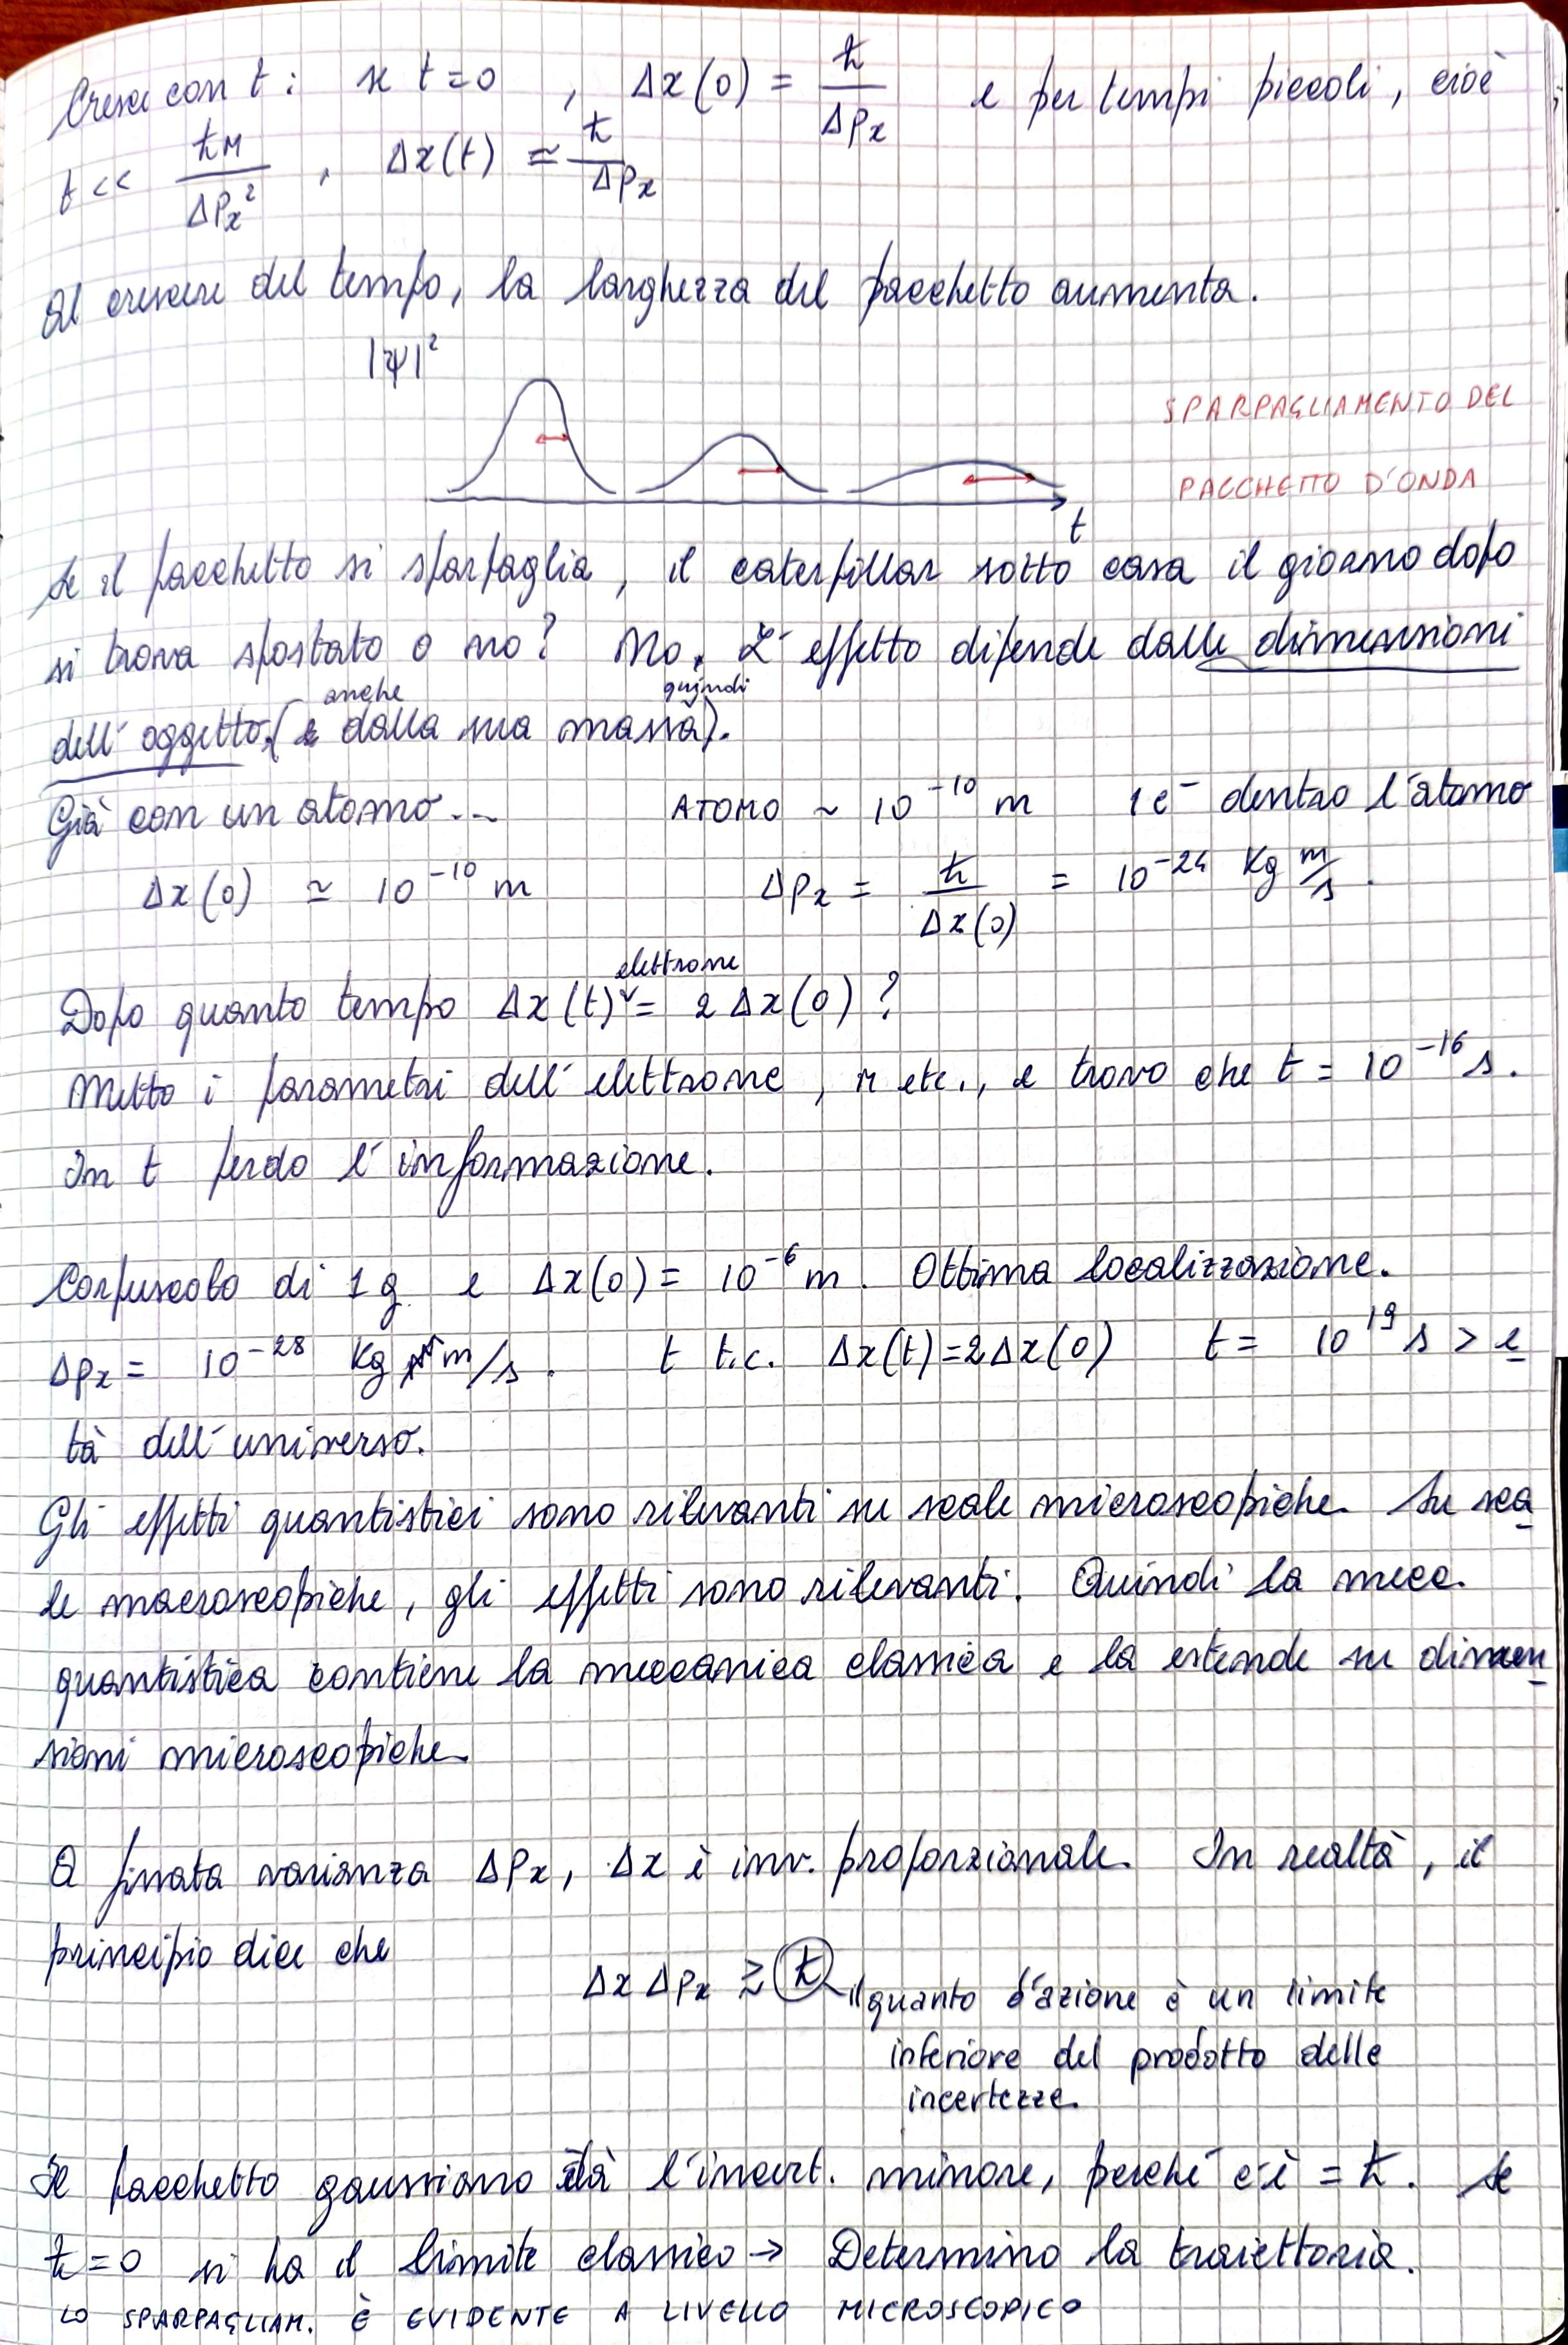 Cresce con t: se t=0 , Δx(0) = ħ/Δpx e per tempi piccoli, cioè
t << ħM/ΔPx² , Δx(t) ≃ ħ/Δpx
Al crescere del tempo, la larghezza del pacchetto aumenta.
|ψ|²
SPARPAGLIAMENTO DEL
PACCHETTO D'ONDA
t
Se il pacchetto si sparpaglia, il caterpillar sotto casa il giorno dopo
si trova spostato o no? No. L'effetto dipende dalle dimensioni
anche quindi
dell'oggetto (e dalla sua massa).
Già con un atomo... ATOMO ~ 10⁻¹⁰ m 1e⁻ dentro l'atomo
Δx(0) ≃ 10⁻¹⁰ m Δpx = ħ/Δx(0) = 10⁻²⁴ Kg m/s.
elettrone
Dopo quanto tempo Δx(t) = 2Δx(0)?
Metto i parametri dell'elettrone, M etc., e trovo che t = 10⁻¹⁶ s.
In t perdo l'informazione.
Corpuscolo di 1g e Δx(0) = 10⁻⁶ m. Ottima localizzazione.
Δpx = 10⁻²⁸ Kg m/s. t t.c. Δx(t)=2Δx(0) t = 10¹⁹ s > e
tà dell'universo.
Gli effetti quantistici sono rilevanti su scale microscopiche. Su sca
le macroscopiche, gli effetti sono rilevanti. Quindi la mecc.
quantistica contiene la meccanica classica e la estende su dimen
sioni microscopiche.
A fissata varianza Δpx, Δx è inv. proporzionale. In realtà, il
principio dice che
Δx Δpx ≳ ħ il quanto d'azione è un limite
inferiore del prodotto delle
incertezze.
Il pacchetto gaussiano dà l'incert. minore, perché c'è = ħ. Se
ħ=0 si ha il limite classico → Determino la traiettoria.
LO SPARPAGLIAM. È EVIDENTE A LIVELLO MICROSCOPICO